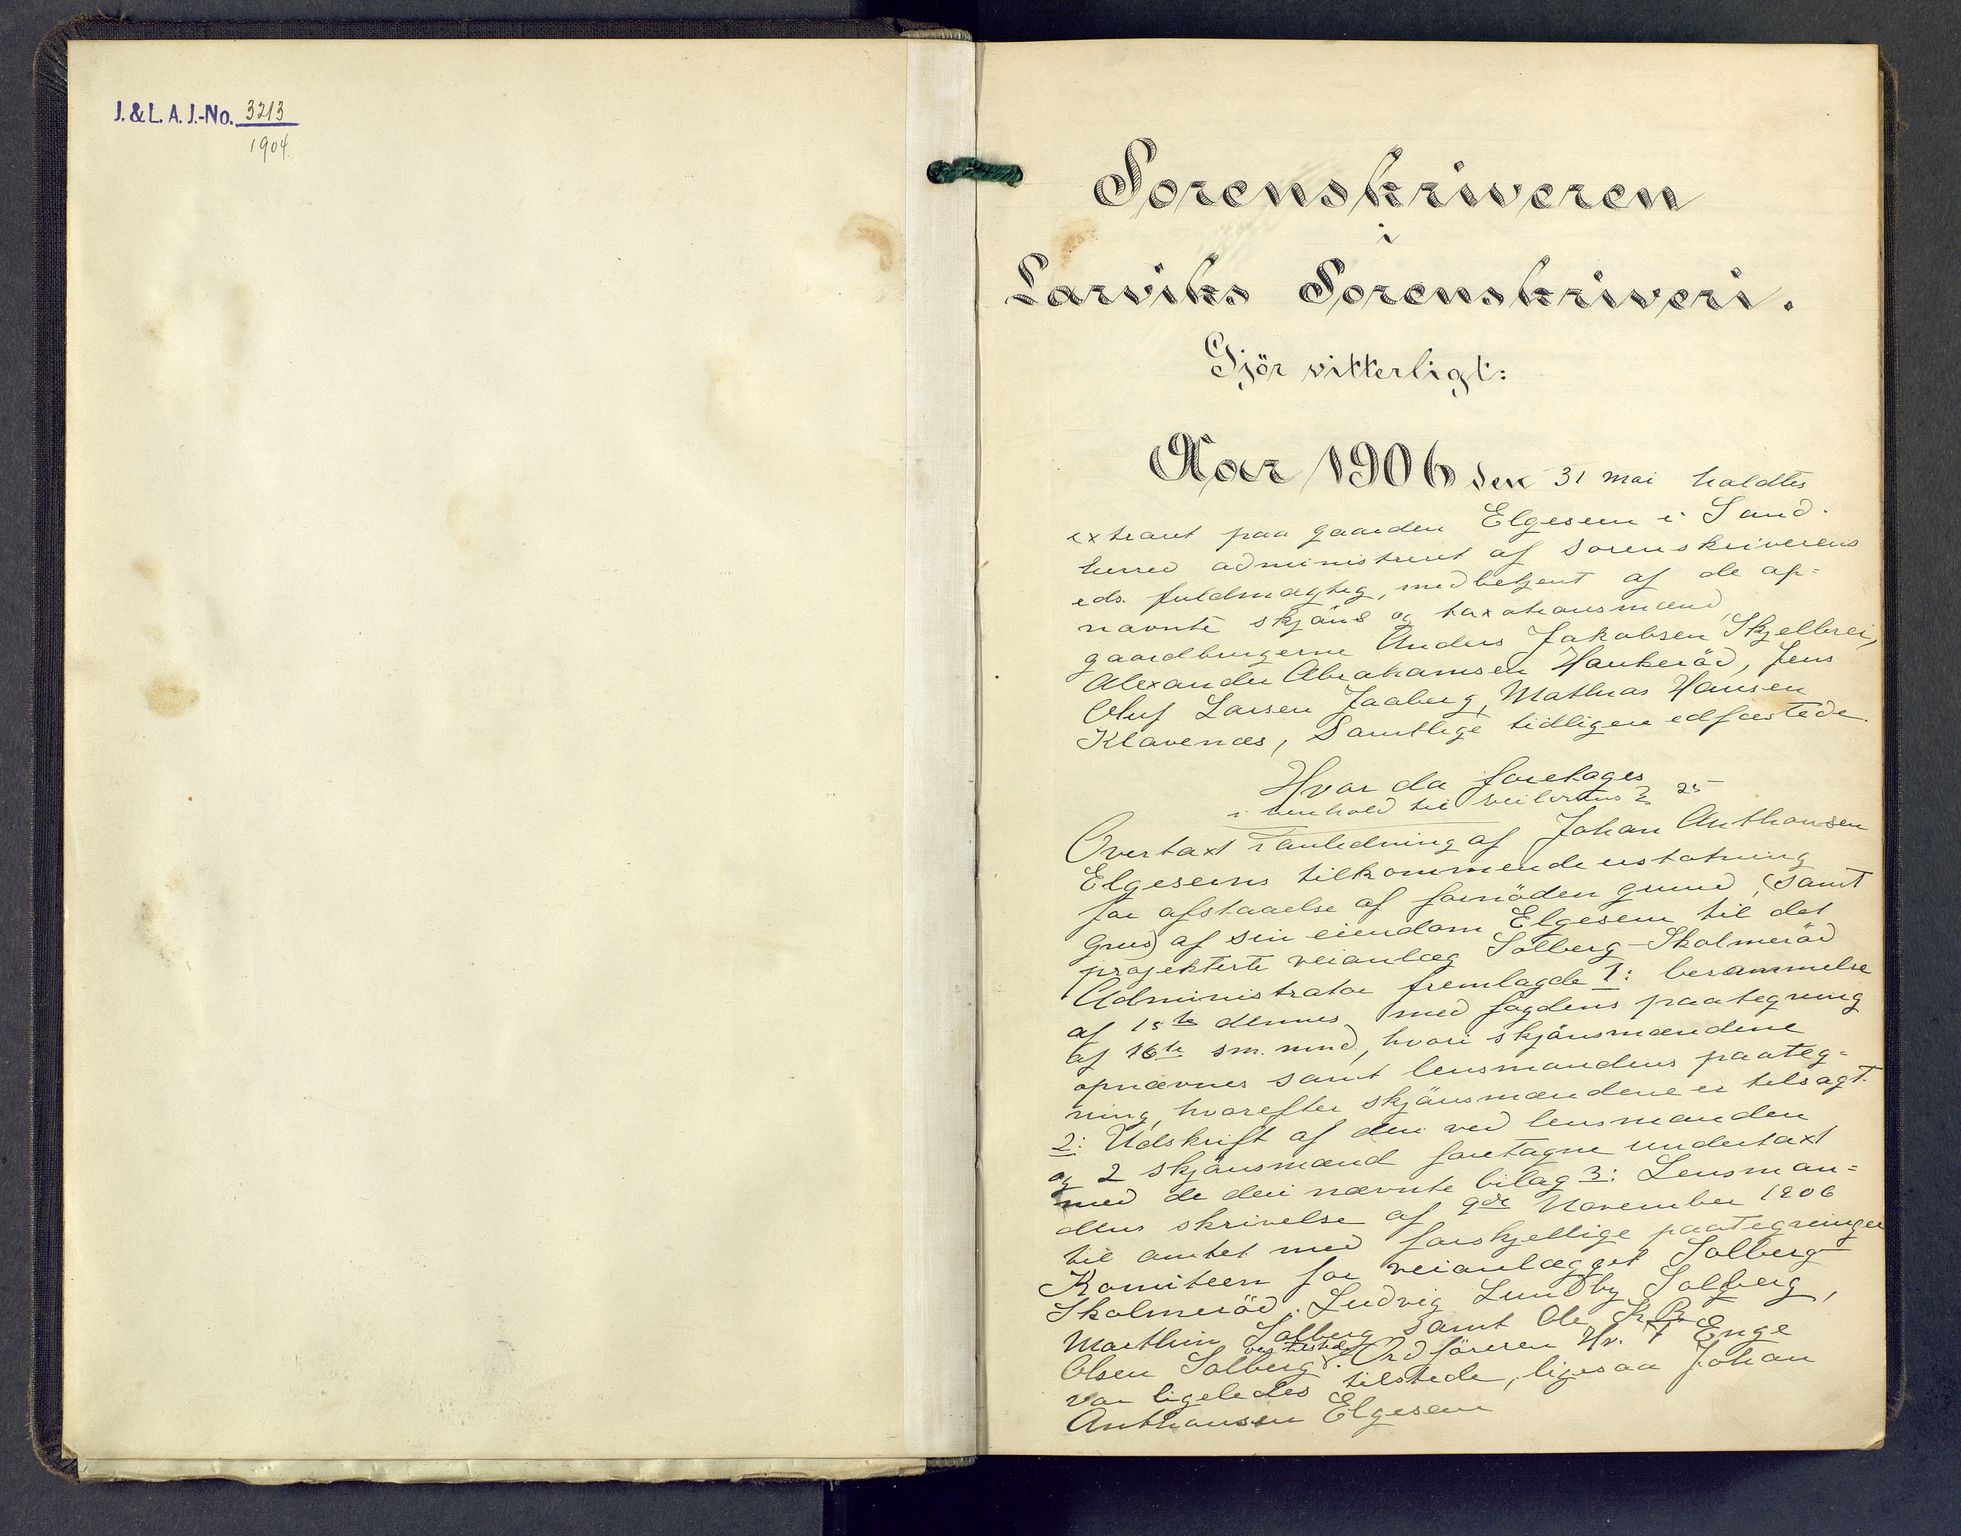 J. & L. A. J.-No. 3213
1904.
Sorenskriveren
i
Larviks Sorenskriveri.
Gjör vitterligt:
Aar 1906 den 31 mai holdtes
extraret paa gaarden Elgesem i Sand-
herred administreret af sorenskriverens
eds. fuldmægtig, medbetjent af de op=
nævnte skjöns og taxationsmænd,
gaardbrugerne Anders Jakobsen Skjelbrei,
Alexander Abrahamsen Haukeröd, Jens
Oluf Larsen Jaaberg, Mathias Hansen
Klavenæs, Samtlige tidligere edfæstede.
Hvor da foretages
i henhold til veilovens § 25
Overtaxt i anledning af Johan Anthonsen
Elgesems tilkommende erstatning
for afstaaelse af fornöden grund, (samt
grus) af sin eiendom Elgesem til det
projekterte veianlæg Solberg-Skolmeröd
Administrator fremlagde 1: berammelse
af 15de dennes med fogdens paategning
af 16de sm. mnd, hvori skjönsmændene
opnævnes samt lensmandens paateg=
ning, hvorefter skjönsmændene er tilsagt.
2: Udskrift af den ved lensmanden
og 2 skjönsmænd foretagne undertaxt
med de deri nævnte bilag 3: Lensman=
dens skrivelse af 9de November 1906
til amtet med forskjellige paategninger
Komiteen for veianlægget Solberg-
Skolmeröd: Ludvig Lundby Solberg,
Marthin Solberg samt Ole K.
Olsen Solberg var tilstede. Ordföreren Hr. Enge
var ligeledes tilstede, ligesaa Johan
Anthonsen Elgesem